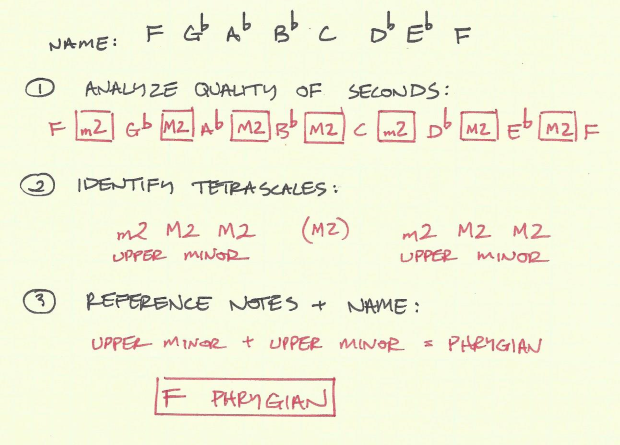 NAME: F G♭ A♭ B♭ C D♭ E♭ F
① ANALYZE QUALITY OF SECONDS:
F m2 G♭ M2 A♭ M2 B♭ M2 C m2 D♭ M2 E♭ M2 F
② IDENTIFY TETRASCALES:
m2 M2 M2 (M2) m2 M2 M2
UPPER MINOR UPPER MINOR
③ REFERENCE NOTES + NAME:
UPPER MINOR + UPPER MINOR = PHRYGIAN
F PHRYGIAN